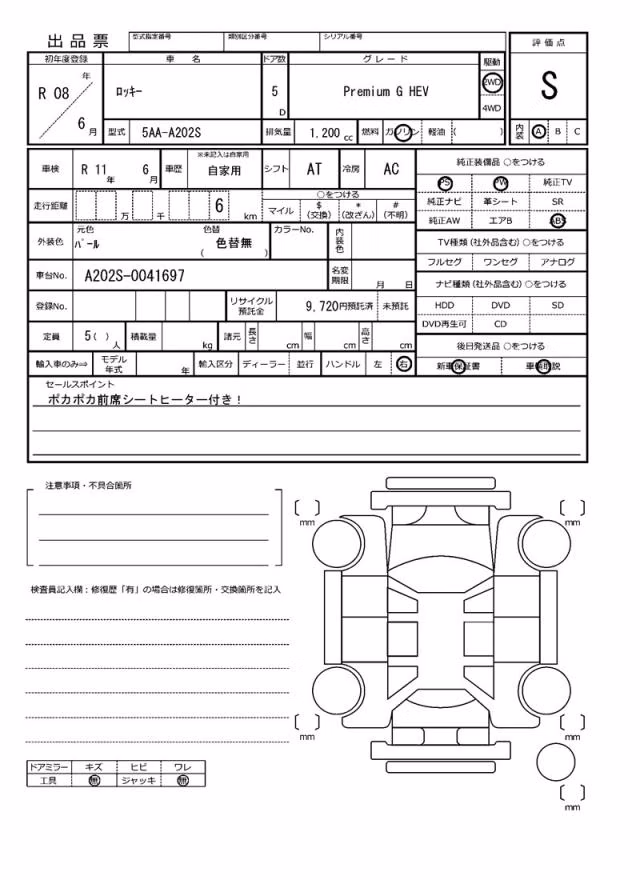 出品票
型式指定番号 類別区分番号 シリアル番号
初年度登録 車 名 ドア数 グレード 駆動 評価点
R 08 年 6 月 ロッキー 5 D Premium G HEV 2WD 4WD S
型式 5AA-A202S 排気量 1.200 cc 燃料 ガソリン 軽油 ( ) 内装 A B C
車検 R 11 年 6 月 車歴 ※未記入は自家用 自家用 シフト AT 冷房 AC
純正装備品 ○をつける
PS PW 純正TV
純正ナビ 革シート SR
純正AW エアB ABS
走行距離 万 千 6 km
○をつける
マイル $ (交換) * (改ざん) # (不明)
外装色 元色 パール 色替 色替無 ( ) カラーNo. 内装色
TV種類 (社外品含む) ○をつける
フルセグ ワンセグ アナログ
車台No. A202S-0041697 名変期限 月 日
ナビ種類 (社外品含む) ○をつける
HDD DVD SD
DVD再生可 CD
登録No. リサイクル預託金 9,720円預託済 未預託
定員 5( ) 人 積載量 kg 諸元 長さ cm 幅 cm 高さ cm
後日発送品 ○をつける
新車保証書
輸入車のみ⇒ モデル年式 年 輸入区分 ディーラー 並行 ハンドル 左 右
セールスポイント
ポカポカ前席シートヒーター付き！
注意事項・不具合箇所
検査員記入欄：修復歴「有」の場合は修復箇所・交換箇所を記入
mm
mm
mm
mm
mm
ドアミラー キズ ヒビ ワレ
工具 無 ジャッキ 無